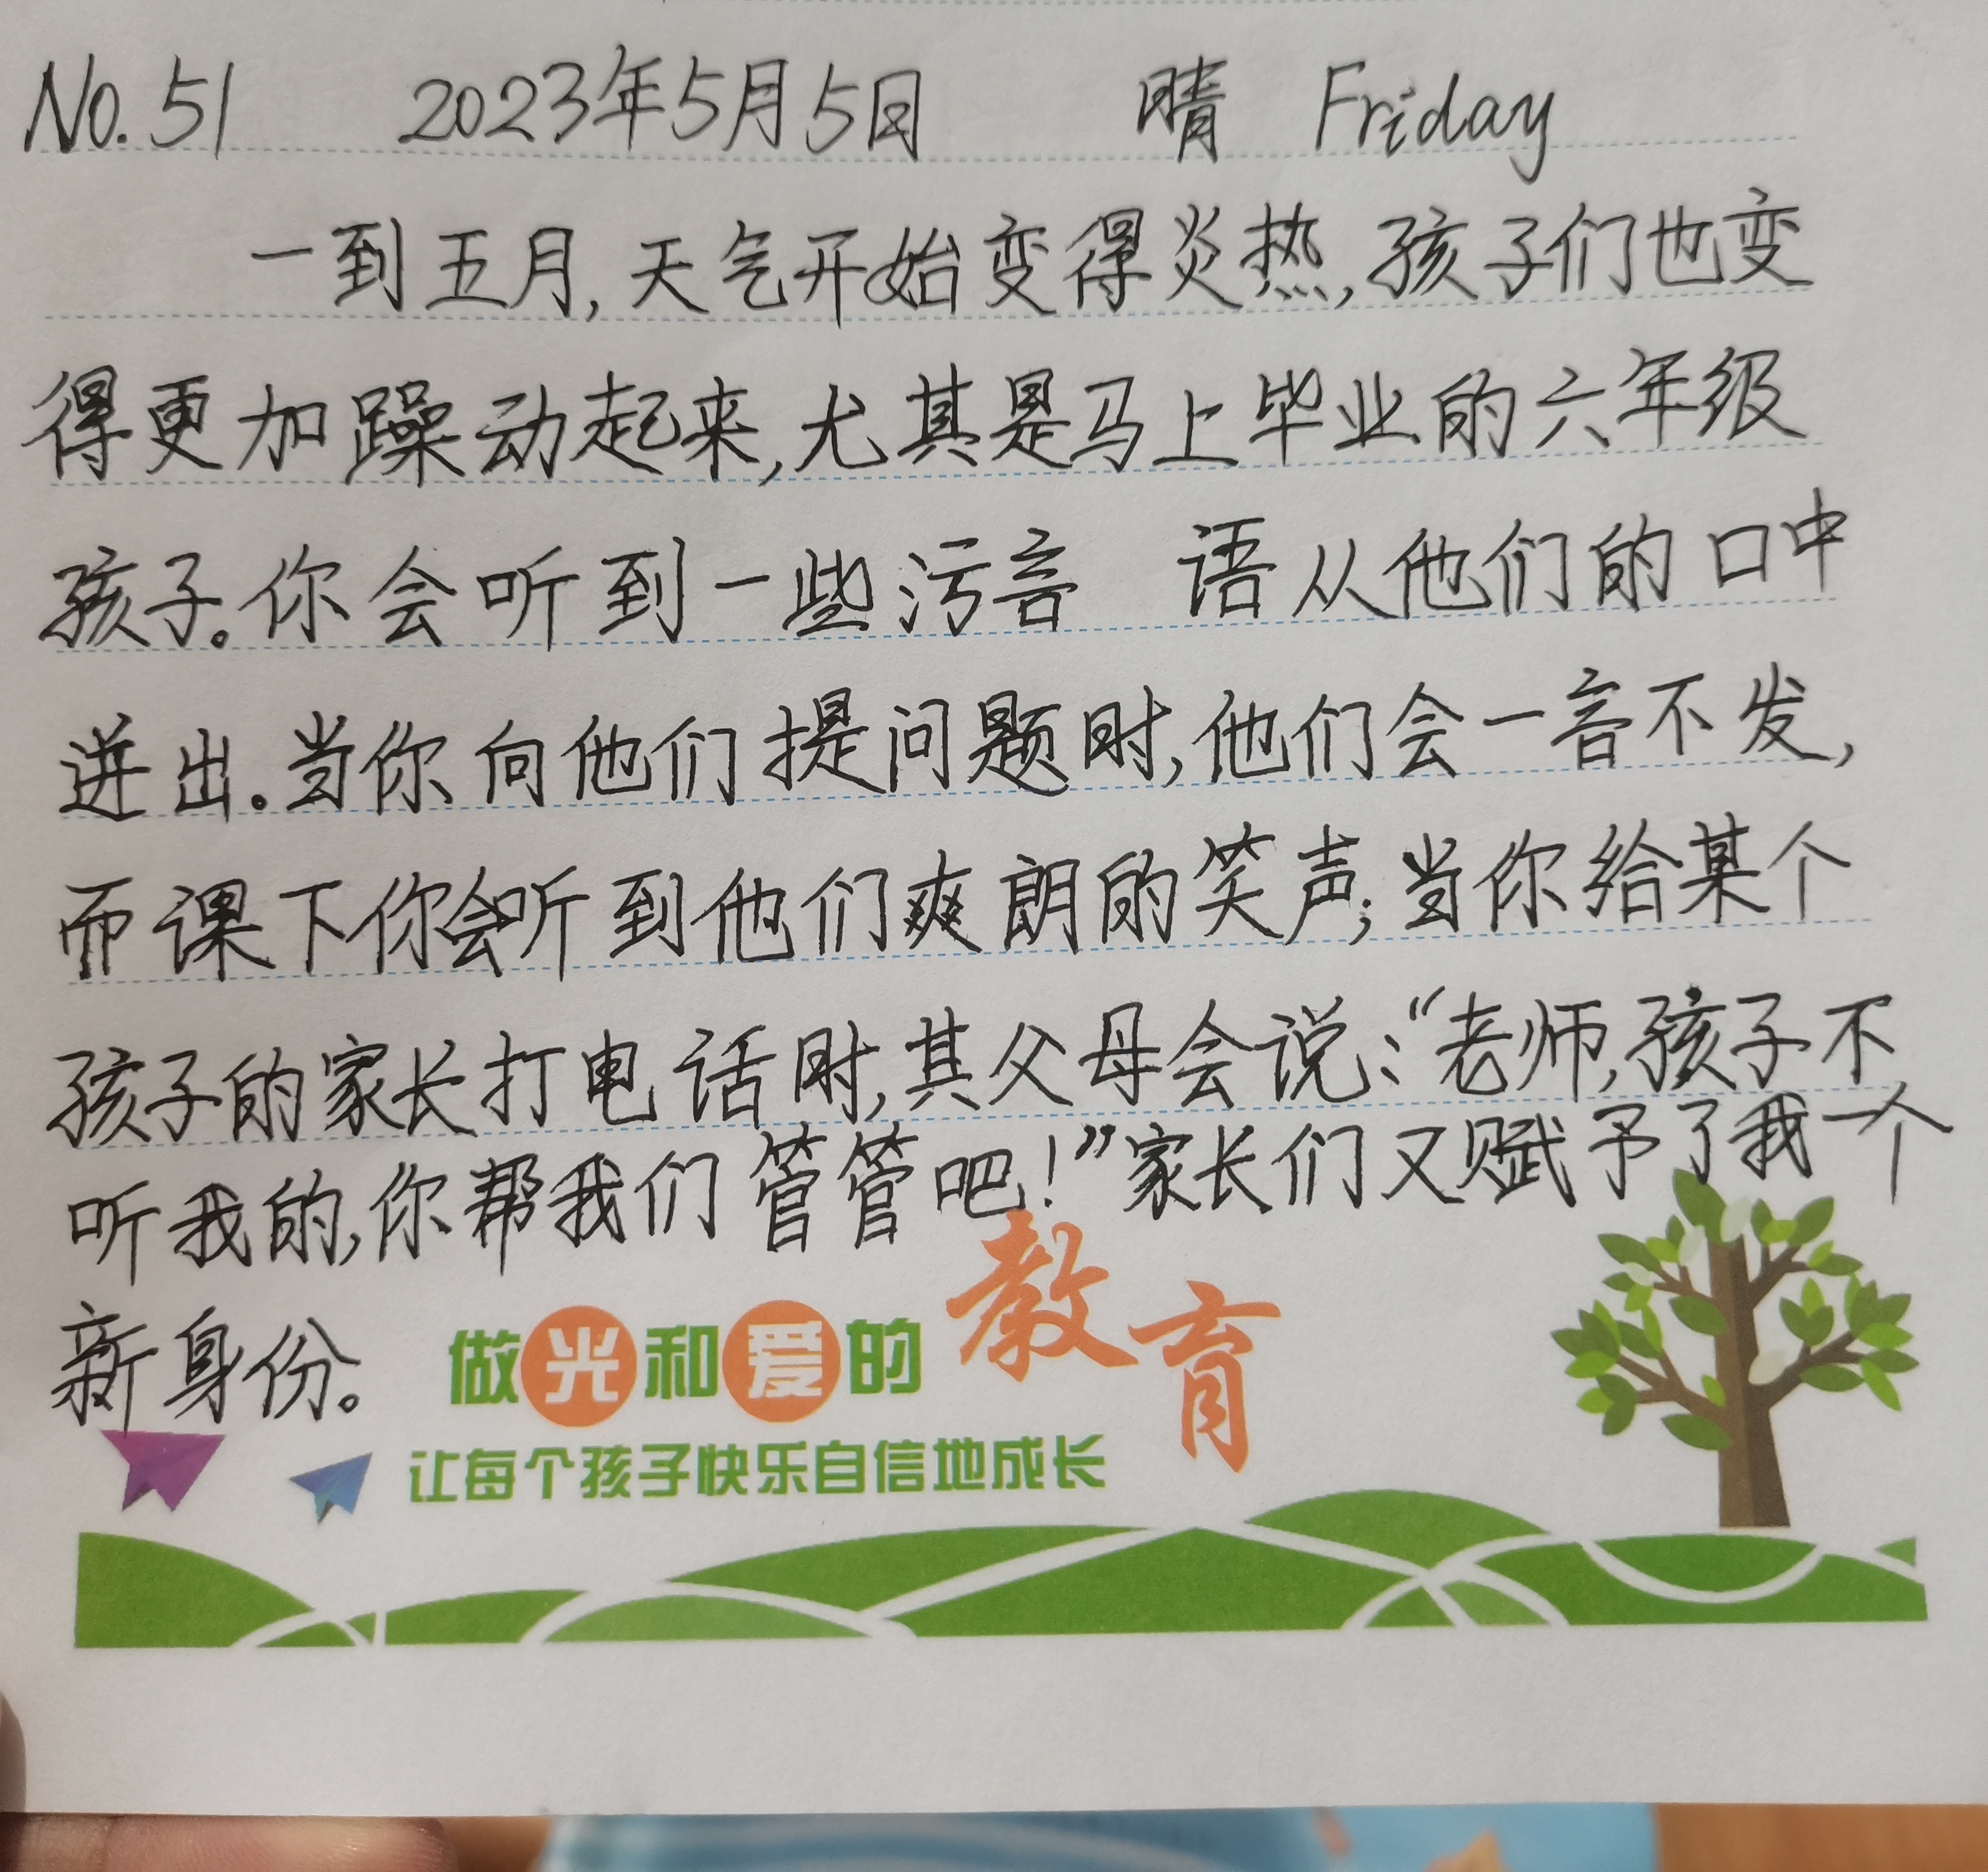 No.51 2023年5月5日 晴 Friday
一到五月,天气开始变得炎热,孩子们也变
得更加躁动起来,尤其是马上毕业的六年级
孩子。你会听到一些污言 语从他们的口中
迸出。当你向他们提问题时,他们会一言不发,
而课下你会听到他们爽朗的笑声;当你给某个
孩子的家长打电话时,其父母会说:“老师,孩子不
听我的,你帮我们管管吧!”家长们又赋予了我一个
新身份。
做光和爱的教育
让每个孩子快乐自信地成长